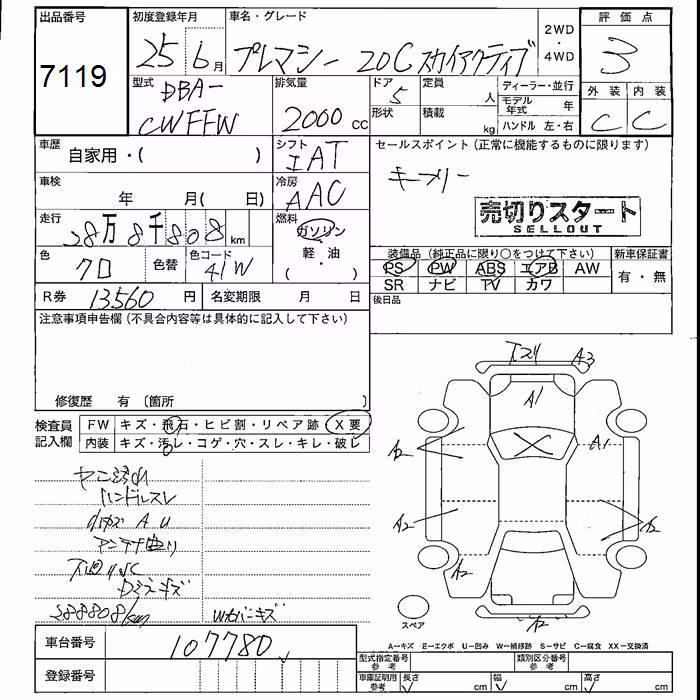 出品番号
7119
初度登録年月
25 6月
車名・グレード
プレマシー 20Cスカイアクティブ
2WD
・
4WD
評価点
3
外装 内装
C C
型式
DBA-
CWFFW
排気量
2000cc
ドア
5
形状
定員
人
積載
kg
ディーラー・並行
モデル年式 年
ハンドル 左・右
車歴
自家用・( )
シフト
IAT
セールスポイント(正常に機能するものに限ります)
キーフリー
売切りスタート
SELLOUT
車検
年 月( 日)
冷房
AAC
走行
28万8千808km
燃料
ガソリン
軽・油
( )
色
クロ
色替
色コード
41W
装備品(純正品に限り○をつけて下さい)
PS PW ABS エアB AW
SR ナビ TV カワ
新車保証書
有・無
後日品
R券 13560円
名変期限 月 日
注意事項申告欄(不具合内容等は具体的に記入して下さい)
修復歴 有〔箇所 〕
検査員記入欄
FW キズ・飛石・ヒビ割・リペア跡 X要
内装 キズ・汚レ・コゲ・穴・スレ・キレ・破レ
ハンドルスレ
288808km
A3
A1
X
A2
A1
A2
A2
A2
A2
スペア
A－キズ E－エクボ U－凹み W－補修跡 S－サビ C－腐食 XX－交換済
車台番号 107780
登録番号
型式指定番号 参考
類別区分番号 参考
車庫証明用 参考
長さ cm 幅 cm 高さ cm